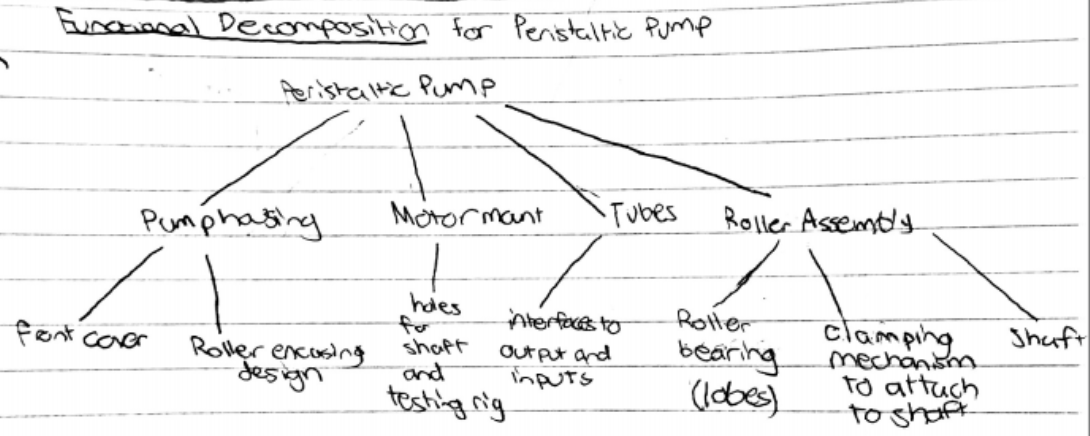 Functional Decomposition for Peristaltic Pump
Peristaltic Pump
Pump housing
Motor mount
Tubes
Roller Assembly
front cover
Roller encasing
design
holes
for
shaft
and
testing rig
interfaces to
output and
inputs
Roller
bearing
(lobes)
Clamping
mechanism
to attach
to shaft
Shaft